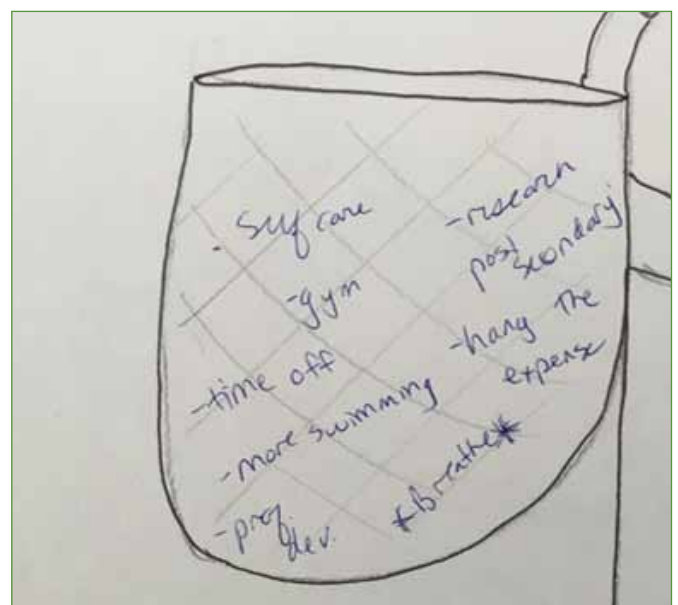 - Self care
- gym
- time off
- more swimming
- prof
dev.
- research
post
secondary
- hang the
expense
*Breathe*